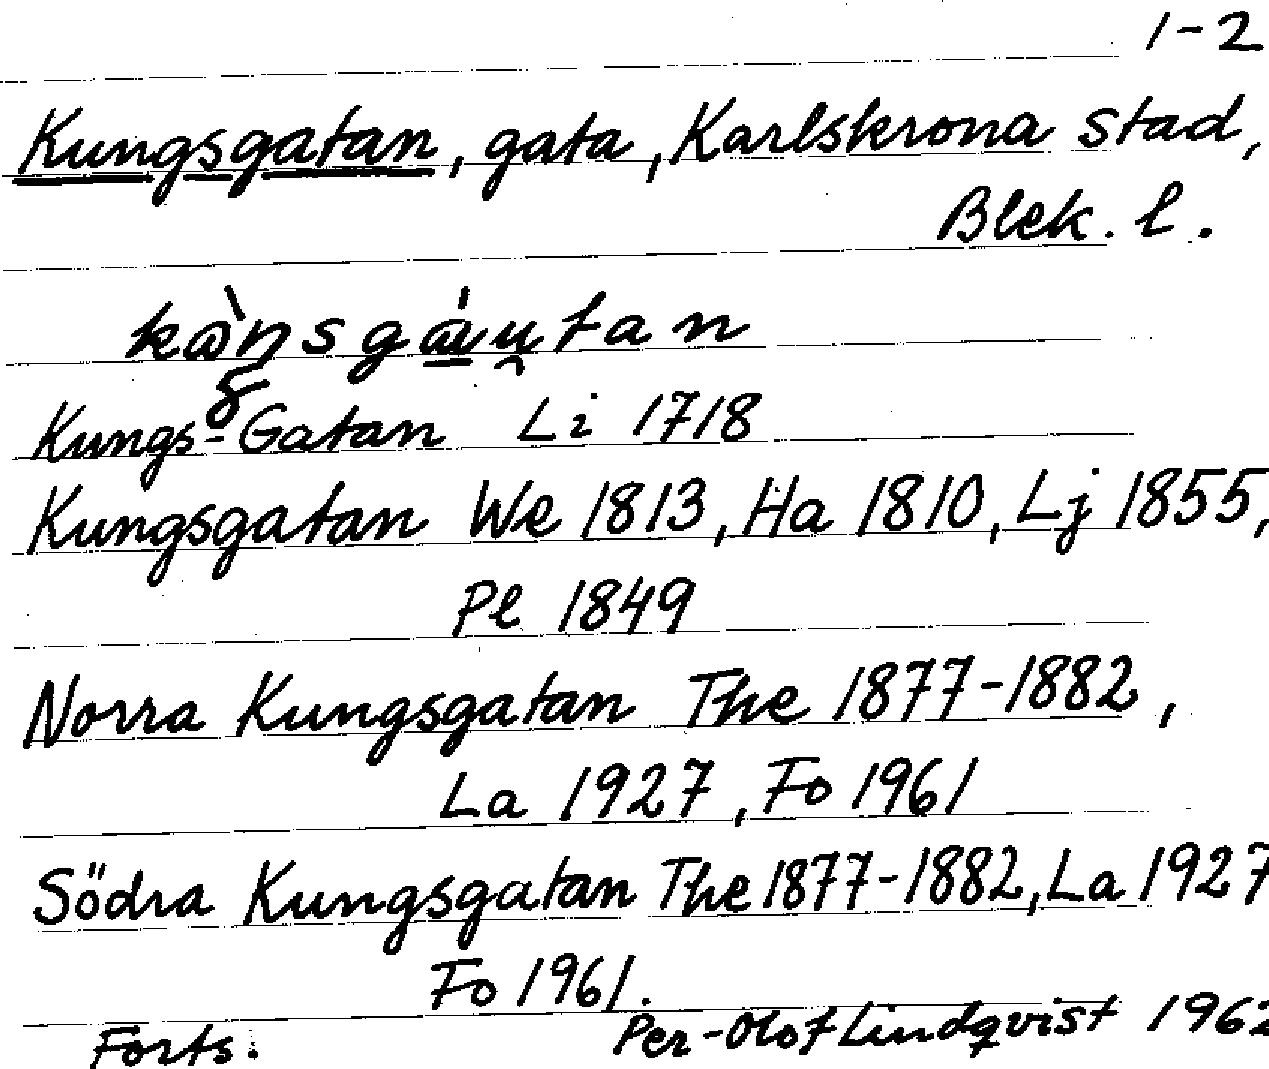 1-2
Kungsgatan, gata, Karlskrona stad,
Blek. l.
Kungs-Gatan Li 1718
Kungsgatan We 1813, Ha 1810, Lj 1855,
Pl 1849
Norra Kungsgatan The 1877-1882,
La 1927, Fo 1961
Södra Kungsgatan The 1877-1882, La 1927
Fo 1961.
Forts. Per-Olof Lindqvist 1962